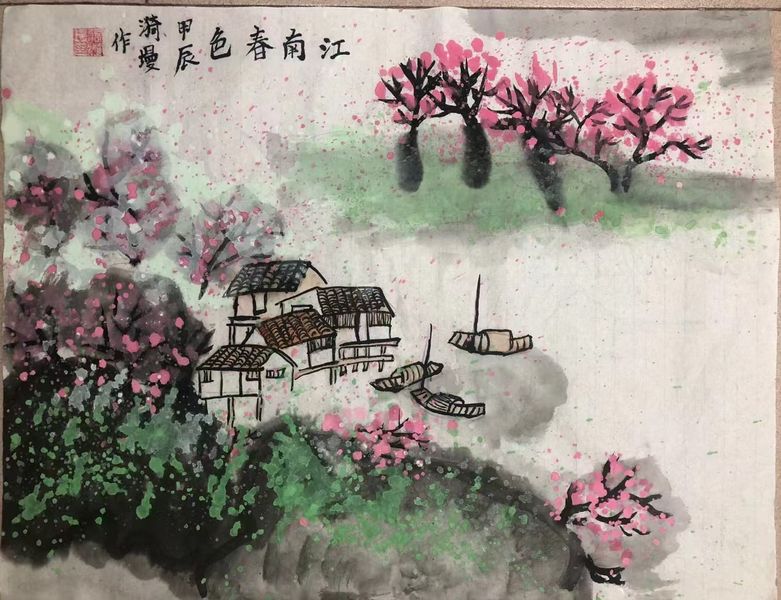 江南春色
甲辰
漪墁
作